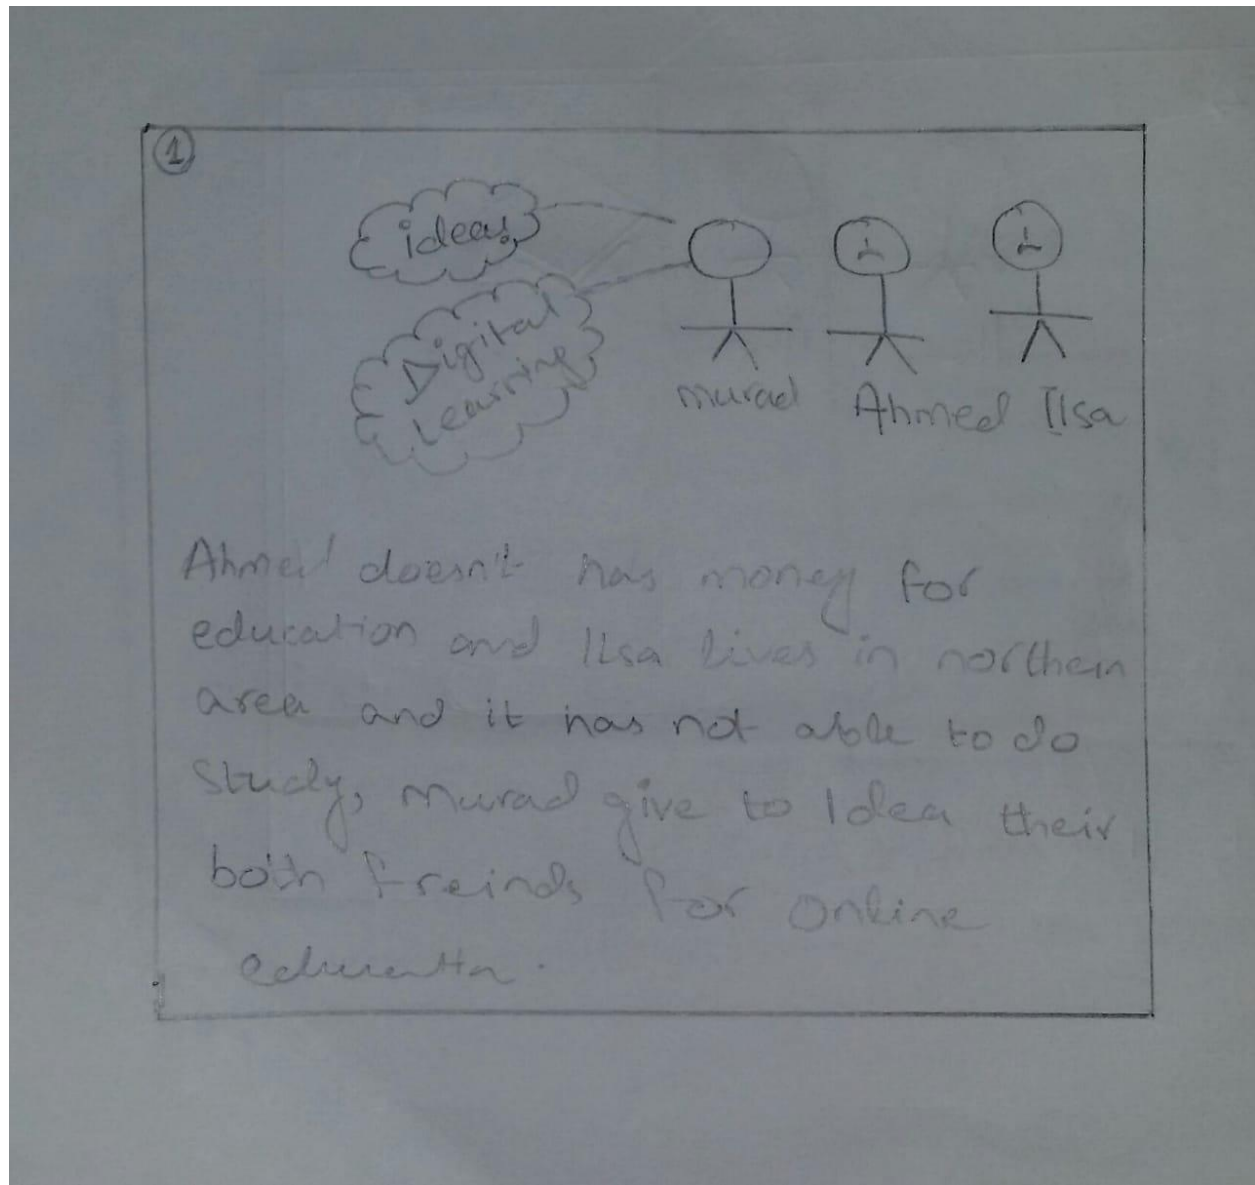 1
ideas
Digital
Learning
murad Ahmed Ilsa
Ahmed doesn't has money for
education and Ilsa lives in northen
area and it has not able to do
study, murad give to Idea their
both freinds for online